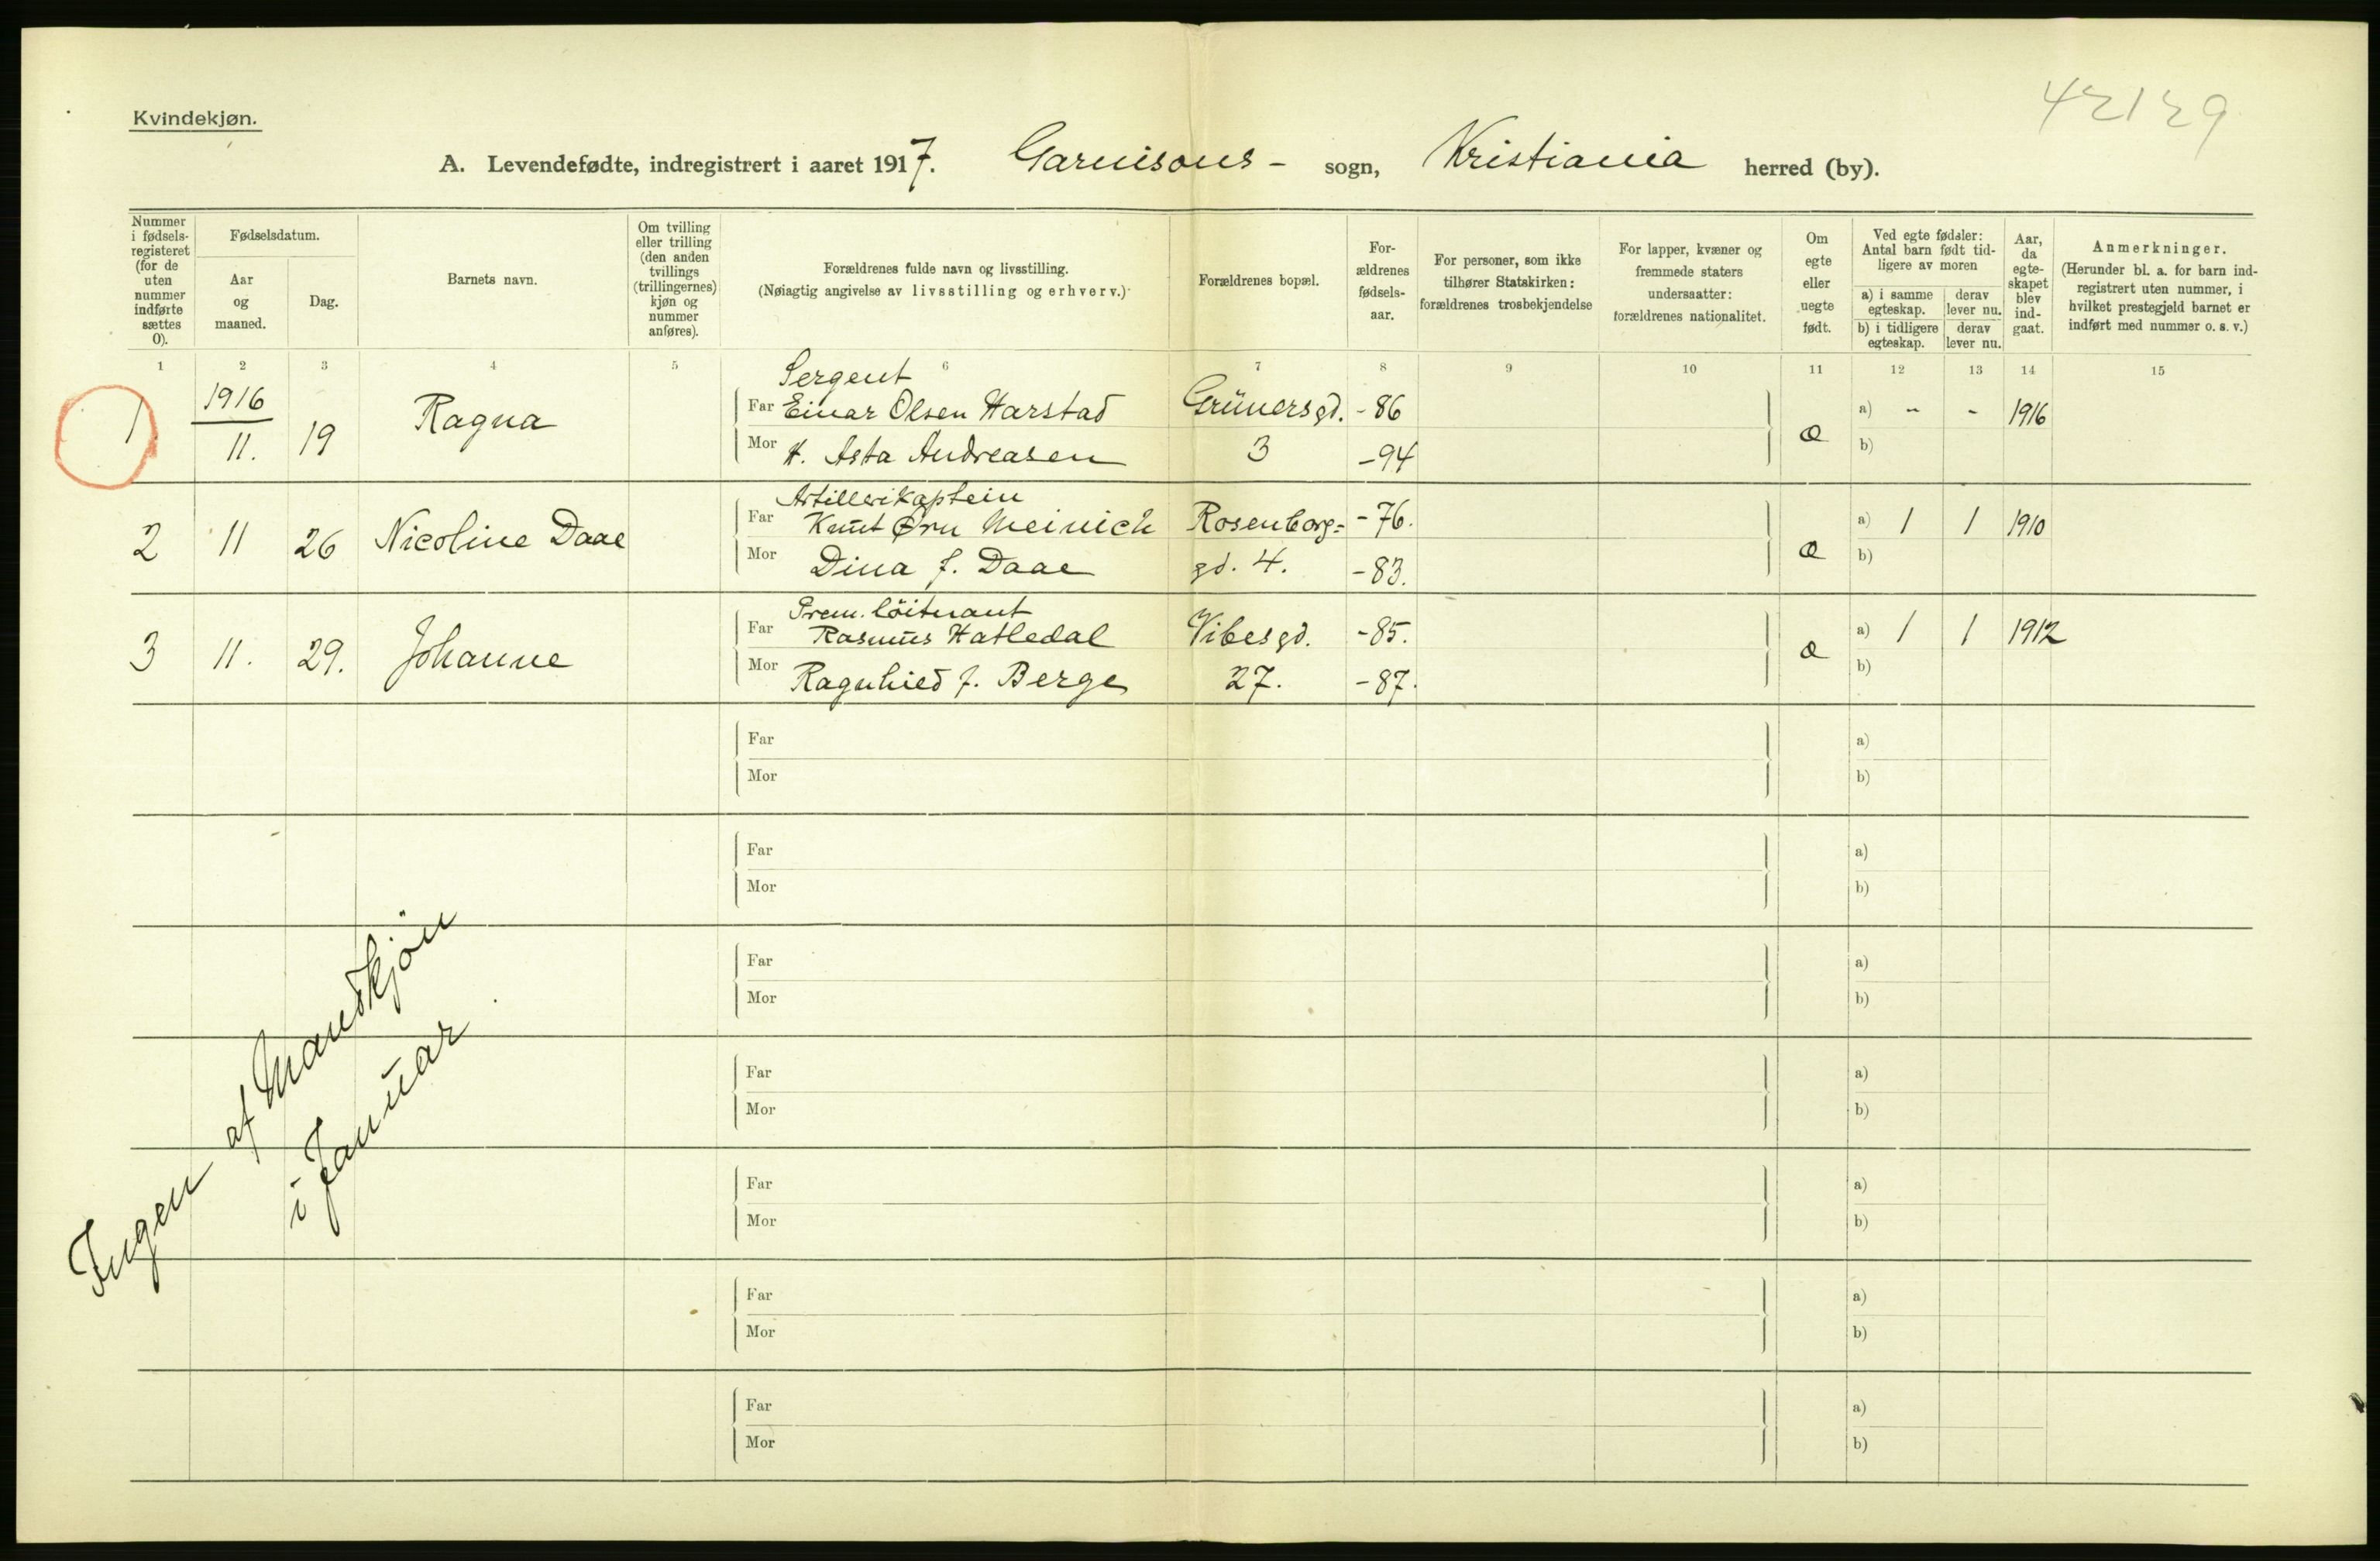 Kvindekjøn.
42129
A. Levendefødte, indregistrert i aaret 1917. Garnisons- sogn, Kristiania herred (by).
Nummer i fødsels-registeret (for de uten nummer indførte sættes 0).
Fødselsdatum.
Aar og maaned.
Dag.
Barnets navn.
Om tvilling eller trilling (den anden tvillings (trillingernes) kjøn og nummer anføres).
Forældrenes fulde navn og livsstilling.
(Nøiagtig angivelse av livsstilling og erhverv.)
Forældrenes bopæl.
For-ældrenes fødsels-aar.
For personer, som ikke tilhører Statskirken: forældrenes trosbekjendelse
For lapper, kvæner og fremmede staters undersaatter: forældrenes nationalitet.
Om egte eller uegte født.
Ved egte fødsler: Antal barn født tid-ligere av moren
a) i samme egteskap. derav lever nu.
b) i tidligere egteskap. derav lever nu.
Aar, da egte-skapet blev ind-gaat.
Anmerkninger.
(Herunder bl. a. for barn ind-registrert uten nummer, i hvilket prestegjeld barnet er indført med nummer o. s. v.)
1 2 3 4 5 6 7 8 9 10 11 12 13 14 15
Sergent
1. 1916 11. 19 Ragna Far Einar Olsen Harstad Grünersgd. -86 æ a) - - 1916
Mor H. Asta Andreasen 3 -94 b)
Artillerikaptein
2 11 26 Nicoline Daae Far Knut Ørn Meinich Rosenborg- -76. æ a) 1 1 1910
Mor Dina f. Daae gd. 4. -83. b)
Prem. löitnant
3 11. 29. Johanne Far Rasmus Hatledal Vibesgd. -85. æ a) 1 1 1912
Mor Ragnhild f. Berge 27. -87. b)
Far a)
Mor b)
Far a)
Mor b)
Far a)
Mor b)
Far a)
Mor b)
Far a)
Mor b)
Far a)
Mor b)
Far a)
Mor b)
Ingen af Mandkjön
i Januar